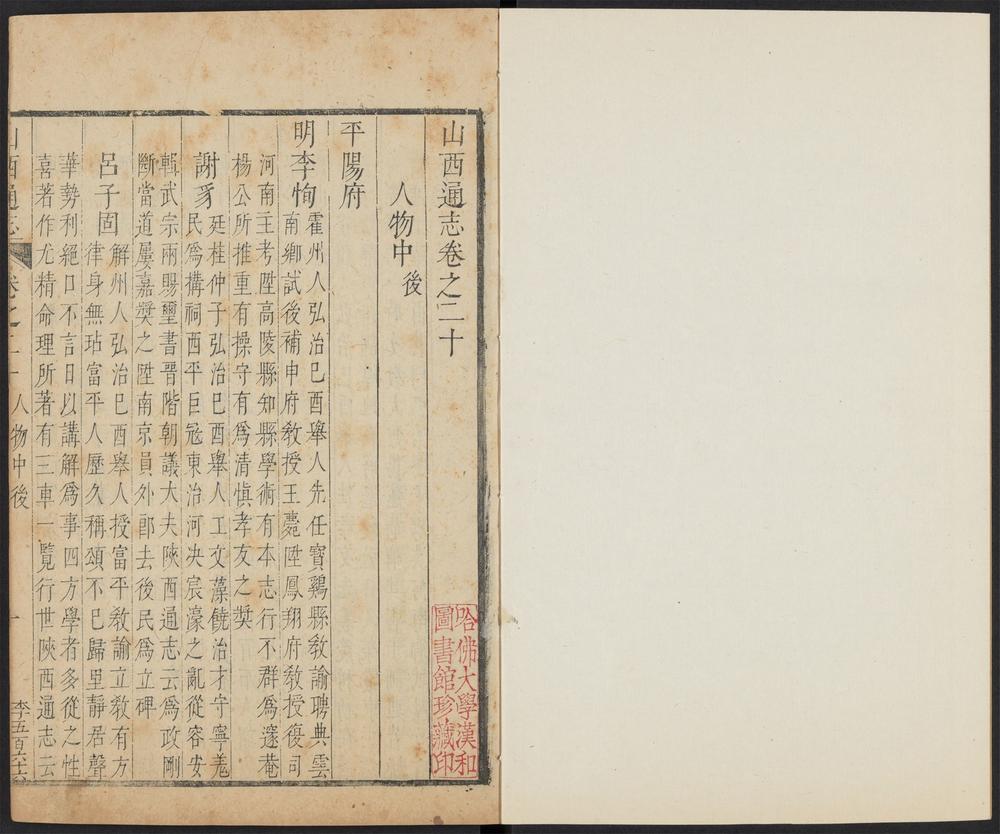 山西通志卷之二十
人物中後
平陽府
明李恂霍州人弘治己酉舉人先任寶鷄縣教諭聘典雲
南鄉試後補申府教授王薨陞鳳翔府教授復司
河南主考陞高陵縣知縣學術有本志行不群爲邃菴
楊公所推重有操守有爲清慎孝友之奬
謝豸廷桂仲子弘治己酉舉人工文藻饒治才守寧羗
民爲構祠西平巨冦東治河决宸濠之亂從容安
輯武宗兩賜璽書晋階朝議大夫陜西通志云爲政剛
斷當道屢嘉奬之陞南京員外郎去後民爲立碑
呂子固解州人弘治己酉舉人授富平教諭立教有方
律身無玷富平人歷久稱頌不已歸里靜居聲
華勢利絕口不言日以講解爲事四方學者多從之性
喜著作尤精命理所著有三車一覽行世陜西通志云
山西通志 卷之二十 人物中後 一
哈佛大學漢和
圖書館珍藏印